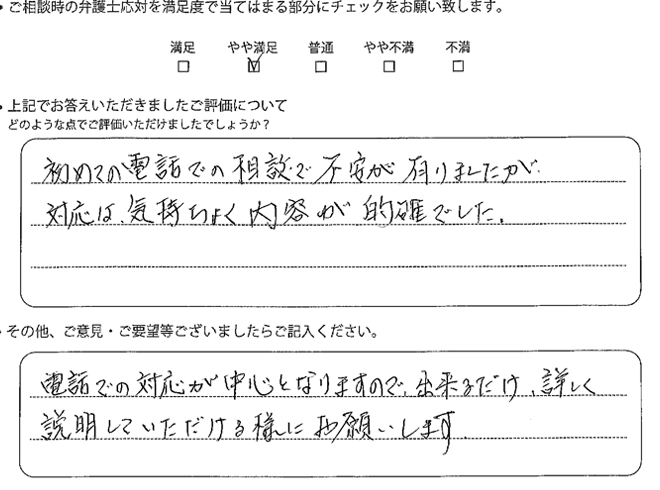 ・ご相談時の弁護士応対を満足度で当てはまる部分にチェックをお願い致します。
満足 やや満足 普通 やや不満 不満
□ ☑ □ □ □
・上記でお答えいただきましたご評価について
どのような点でご評価いただけましたでしょうか？
初めての電話での相談で不安が有りましたが、
対応は、気持ちよく内容が的確でした。
・その他、ご意見・ご要望等ございましたらご記入ください。
電話での対応が中心となりますので、出来るだけ、詳しく
説明していただける様にお願いします。